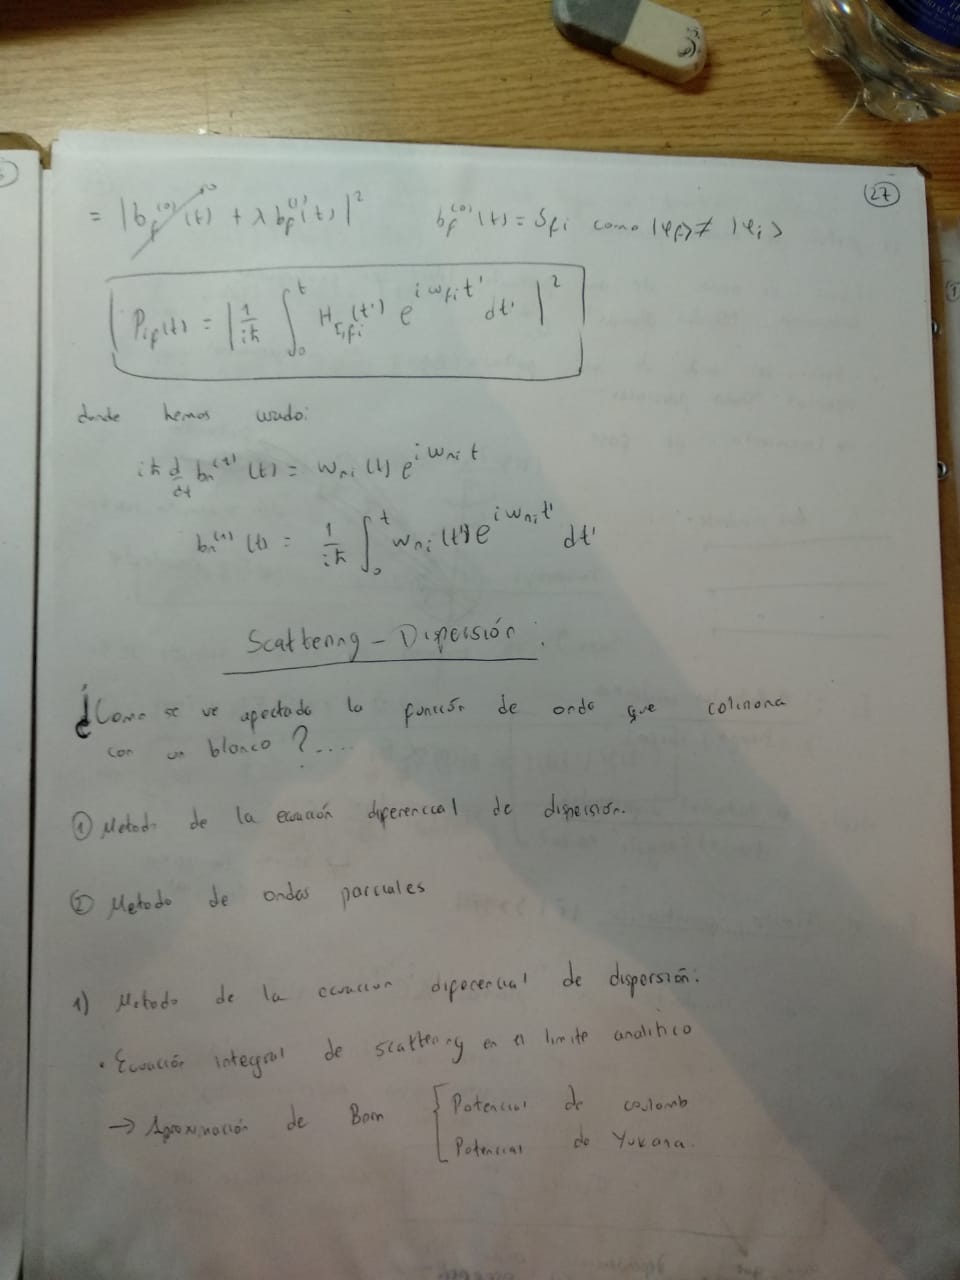 27
= |b_f^(0)(t) + λ b_f^(1)(t)|² b_f^(0)(t) = δ_fi como |φ_f> ≠ |φ_i>
P_if(t) = |1/iħ ∫_0^t H_I,fi(t') e^{i w_fi t'} dt'|²
donde hemos usado:
iħ d/dt b_n^(1)(t) = w_ni(t) e^{i w_ni t}
b_n^(1)(t) = 1/iħ ∫_0^t w_ni(t') e^{i w_ni t'} dt'
Scattering – Dispersión.
¿Como se ve afectado la función de onda que colisiona
con un blanco?....
① Metodo de la ecuación diferencial de dispersión.
② Metodo de ondas parciales
1) Metodo de la ecuacion diferencial de dispersión:
• Ecuación integral de scattering en el limite analitico
→ Aproximación de Born [Potencial de coulomb
Potencial de Yukawa.